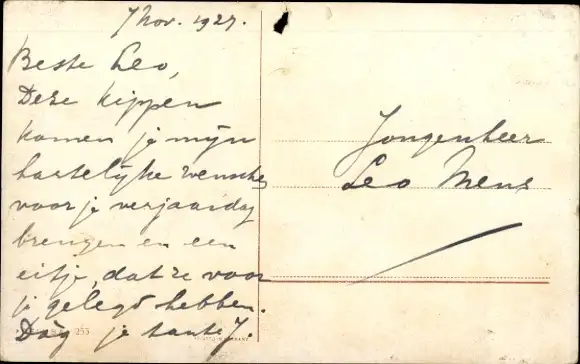 7 Nov. 1927.
Beste Leo,
Deze kippen
komen je mijn
hartelijke wenschen
voor je verjaardag
brengen en een
eitje, dat ze voor
je gelegd hebben.
Dàg je tante J.
253
Jongenheer
Leo Mens